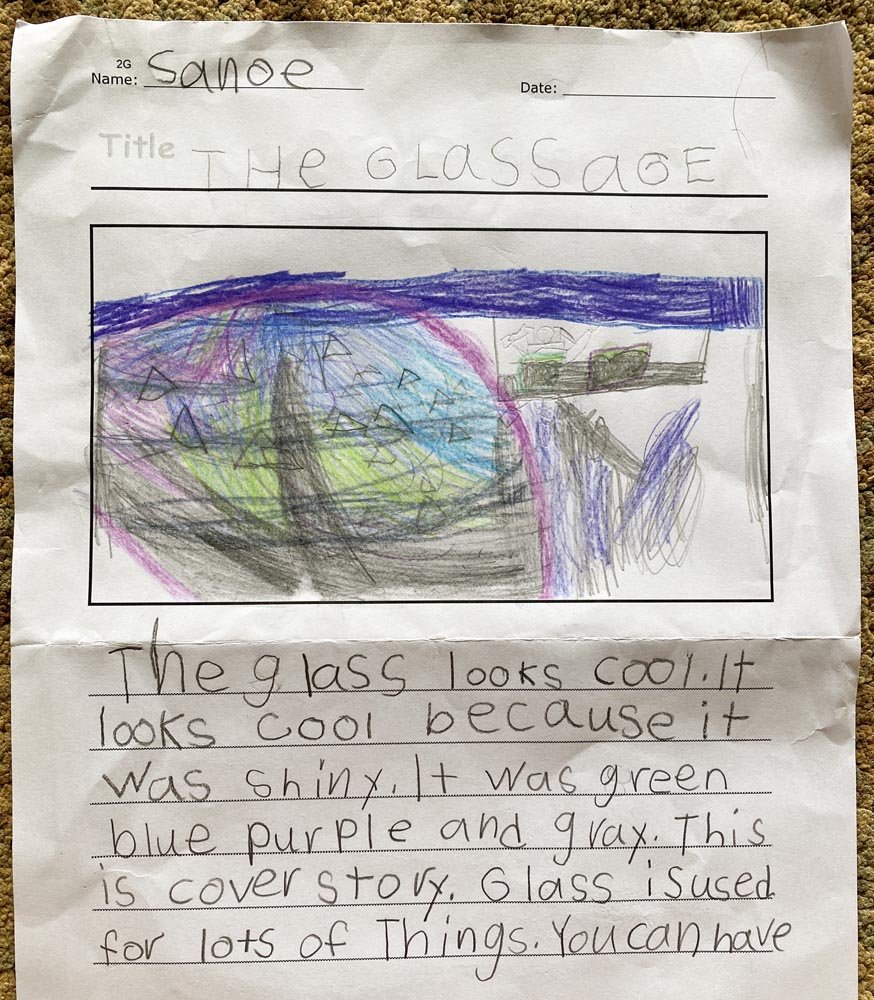 2G
Name: Sanoe
Date:
Title THe GLaSS aGE
The glass looks cool. It
looks cool because it
was shiny. It was green
blue purple and gray. This
is cover story. Glass is used
for lots of Things. You can have